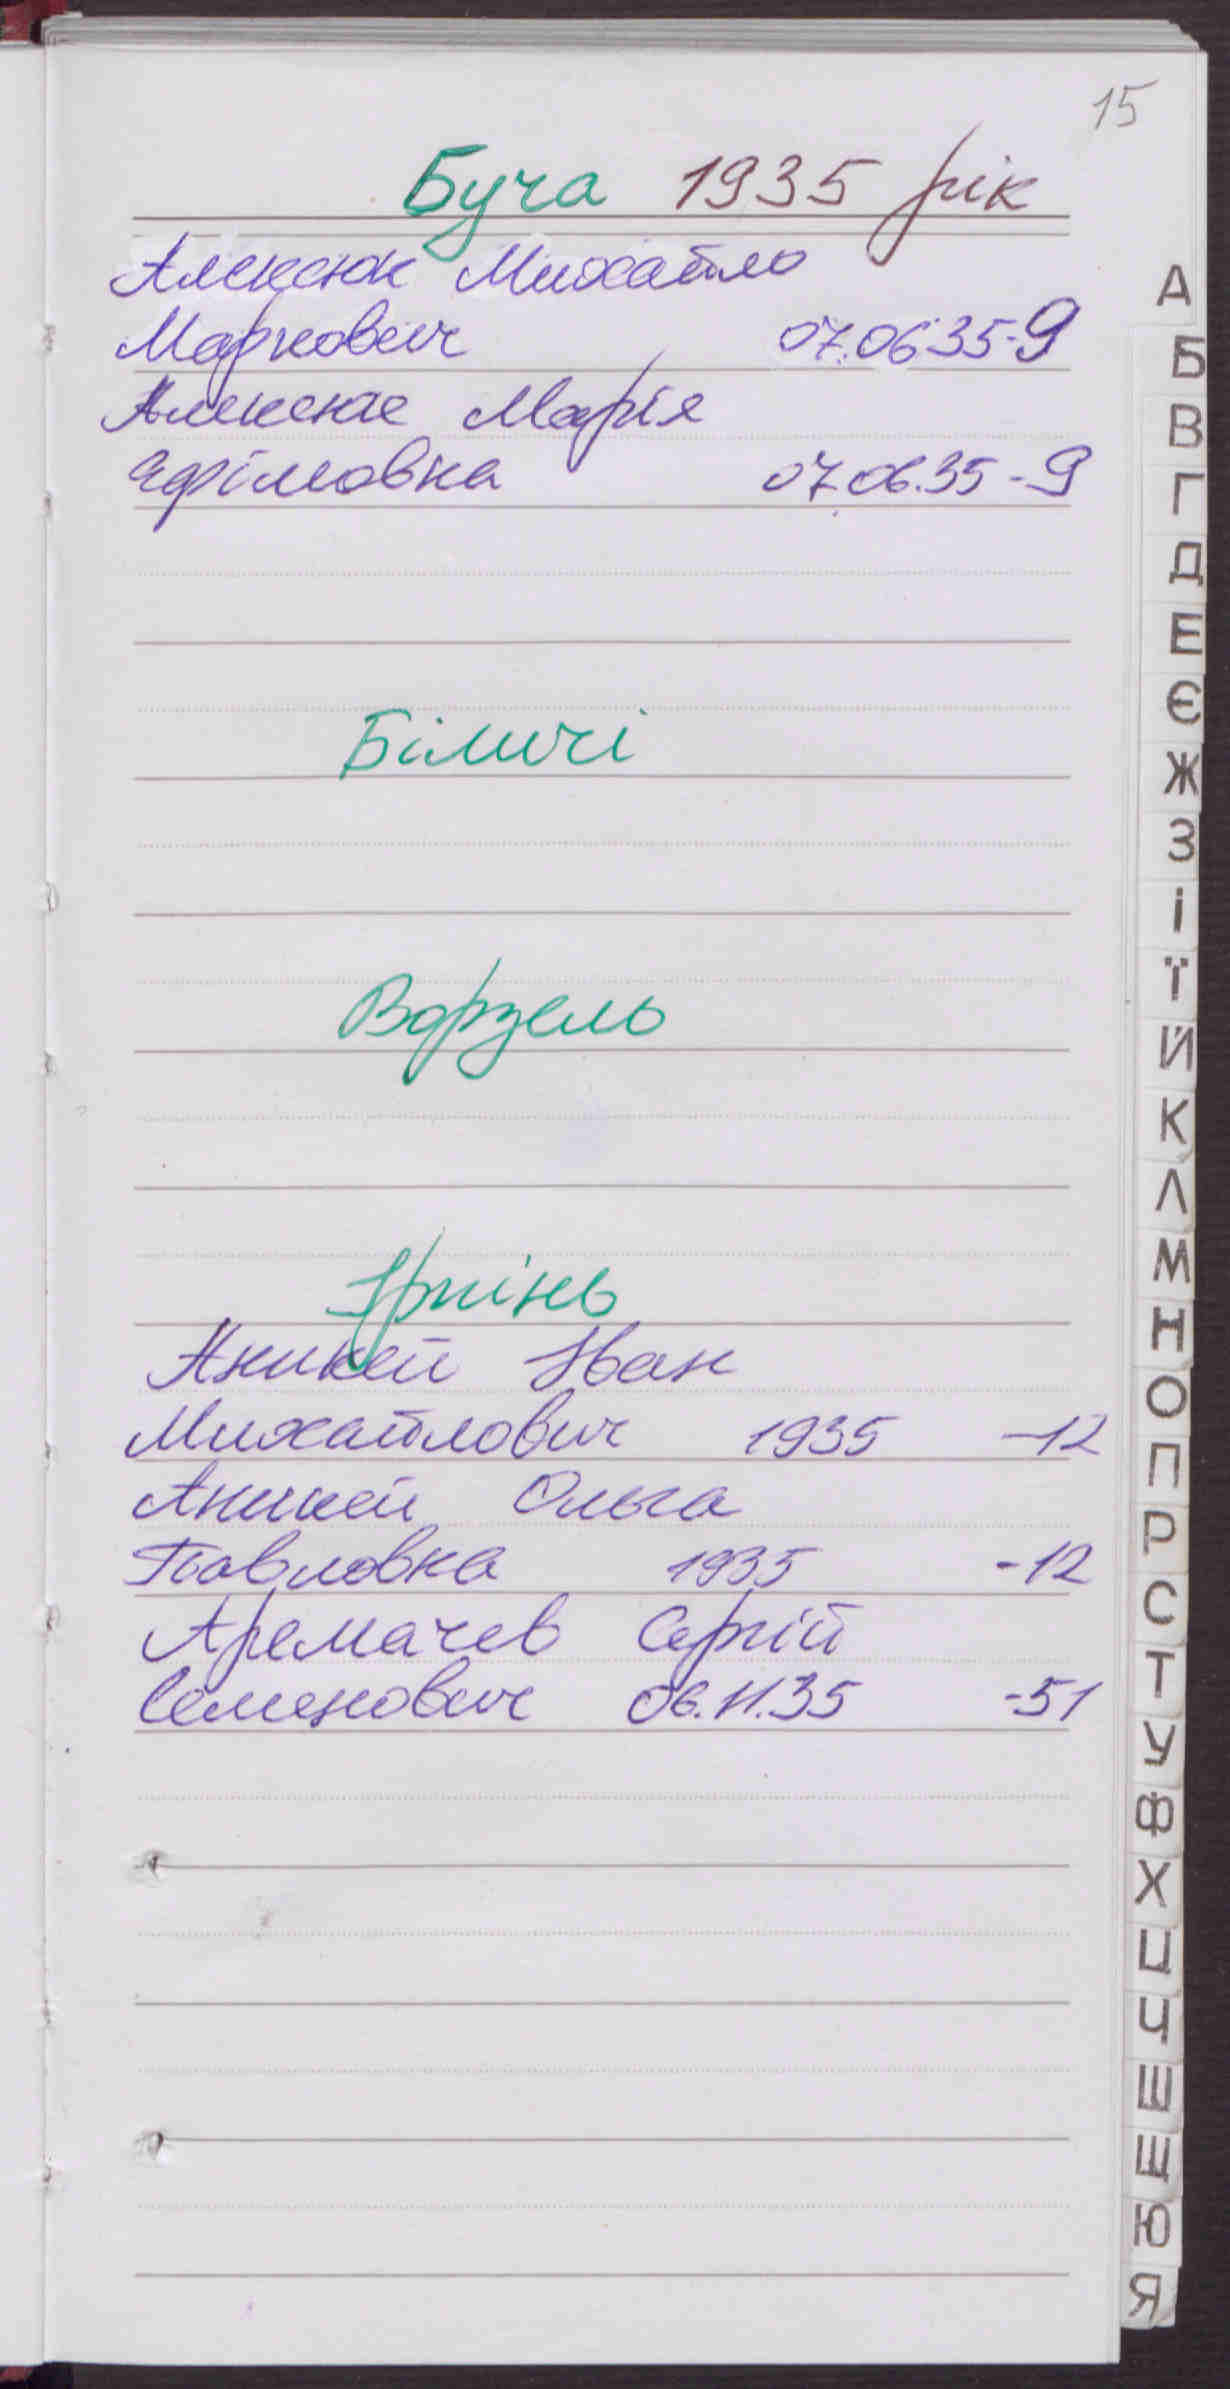 15
Буча 1935 рік
Алексюк Михайло
Маркович 07.06.35-9
Алексюк Марія
Єфімовна 07.06.35-9
Біличі
Ворзель
Ірпінь
Аникей Іван
Михайлович 1935 -12
Аникей Ольга
Павловна 1935 -12
Аремачев Сергій
Семенович 06.11.35 -51
А
Б
В
Г
Д
Е
Є
Ж
З
І
Ї
Й
К
Л
М
Н
О
П
Р
С
Т
У
Ф
Х
Ц
Ч
Ш
Щ
Ю
Я